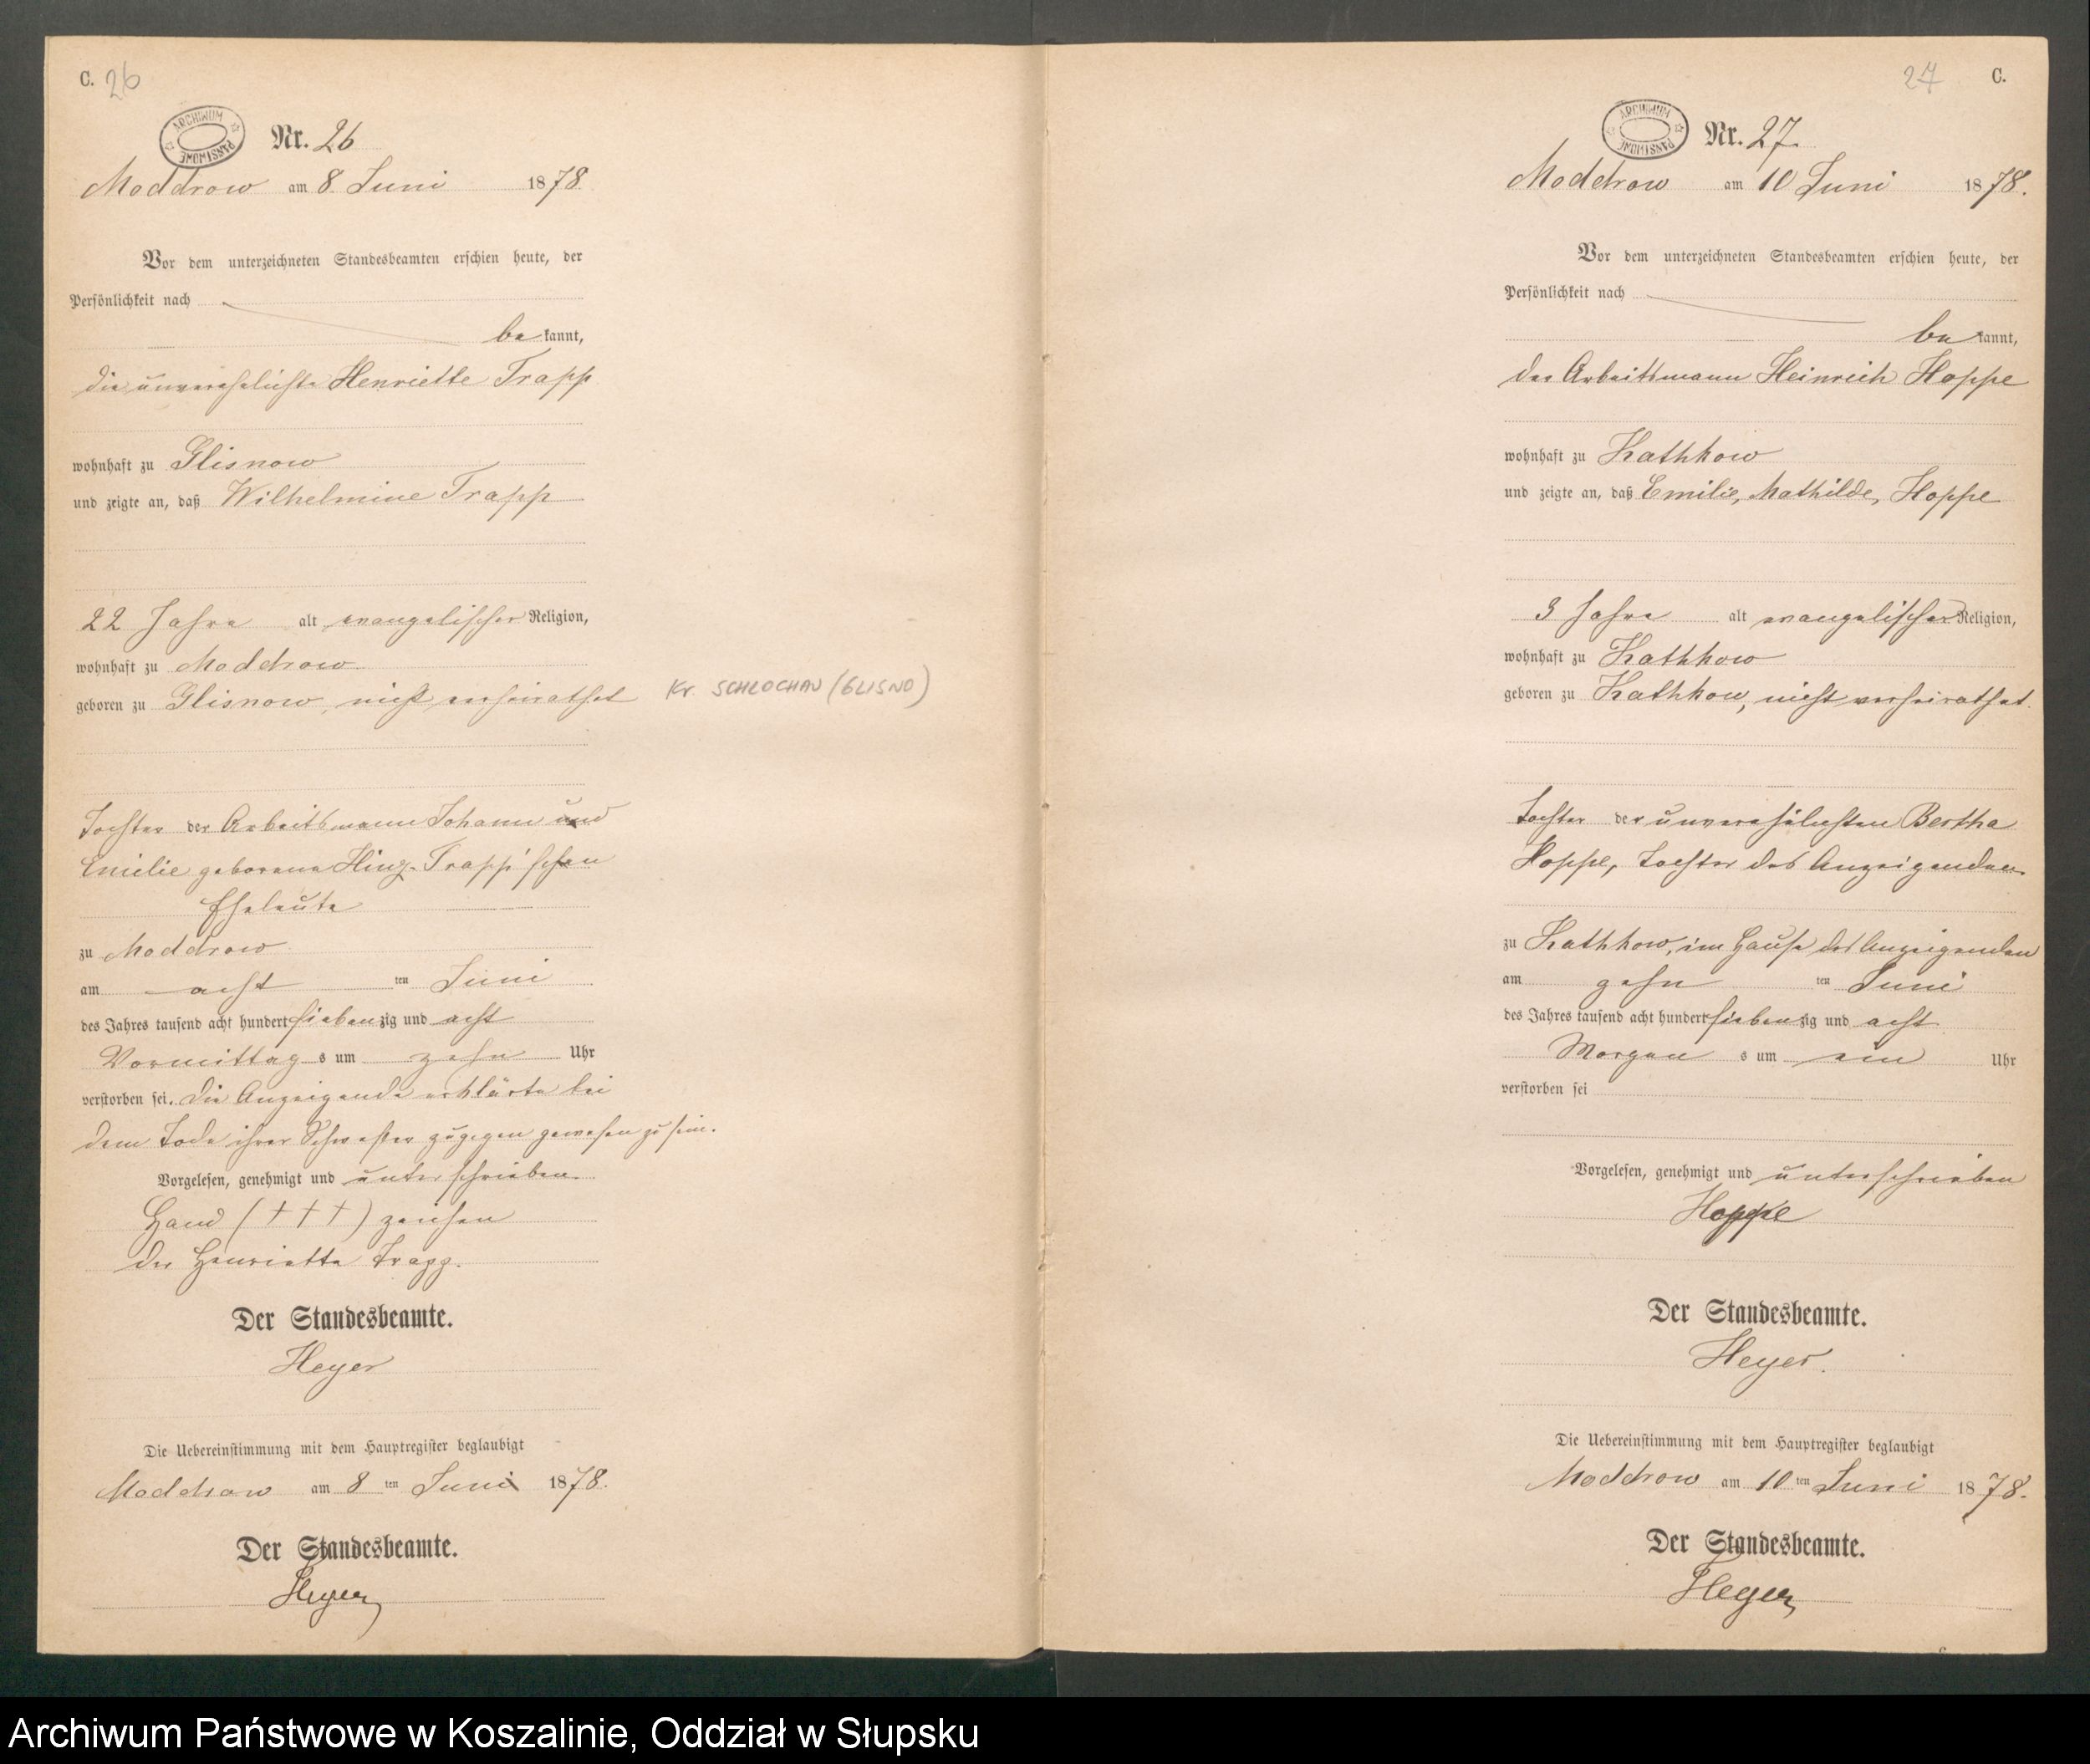 C. 26
ARCHIWUM PAŃSTWOWE
Nr. 26
Moddrow am 8. Juni 1878.
Vor dem unterzeichneten Standesbeamten erschien heute, der
Persönlichkeit nach
be kannt,
die unverehelichte Henriette Trapp
wohnhaft zu Glisnow
und zeigte an, daß Wilhelmine Trapp
22 Jahre alt evangelischer Religion,
wohnhaft zu Moddrow
geboren zu Glisnow, nicht verheirathet Kr. SCHLOCHAU (GLISNO)
Tochter der Arbeitsmann Johann und
Emilie geborene Hinz-Trapp'schen
Eheleute
zu Moddrow
am acht ten Juni
des Jahres tausend acht hundert siebenzig und acht
Vormittag s um zehn Uhr
verstorben sei. Die Anzeigende erklärte bei
dem Tode ihrer Schwester zugegen gewesen zu sein.
Vorgelesen, genehmigt und unterschrieben
Hand (+++) zeichen
der Henriette Trapp.
Der Standesbeamte.
Heyer
Die Uebereinstimmung mit dem Hauptregister beglaubigt
Moddrow am 8 ten Juni 1878.
Der Standesbeamte.
Heyer
27 C.
ARCHIWUM PAŃSTWOWE
Nr. 27.
Moddrow am 10 Juni 1878.
Vor dem unterzeichneten Standesbeamten erschien heute, der
Persönlichkeit nach
be kannt,
der Arbeitsmann Heinrich Hoppe
wohnhaft zu Kathkow
und zeigte an, daß Emilie, Mathilde, Hoppe
3 Jahre alt evangelischer Religion,
wohnhaft zu Kathkow
geboren zu Kathkow, nicht verheirathet.
Tochter der unverehelichten Bertha
Hoppe, Tochter des Anzeigenden
zu Kathkow, im Hause des Anzeigenden
am zehn ten Juni
des Jahres tausend acht hundert siebenzig und acht
Morgen s um ein Uhr
verstorben sei
Vorgelesen, genehmigt und unterschrieben
Hoppe
Der Standesbeamte.
Heyer.
Die Uebereinstimmung mit dem Hauptregister beglaubigt
Moddrow am 10 ten Juni 1878.
Der Standesbeamte.
Heyer
Archiwum Państwowe w Koszalinie, Oddział w Słupsku